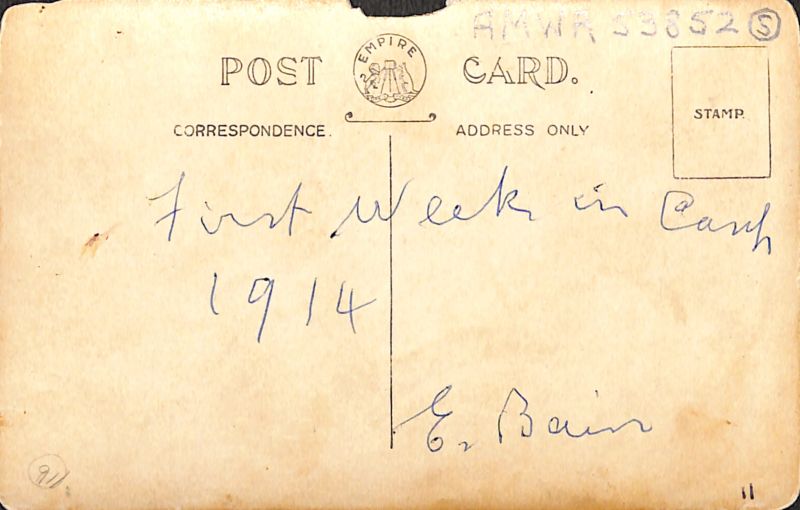 AMWR 53852 (S)
EMPIRE
POST CARD.
CORRESPONDENCE. ADDRESS ONLY
STAMP.
First Week in Camp
1914
E. Bain
11